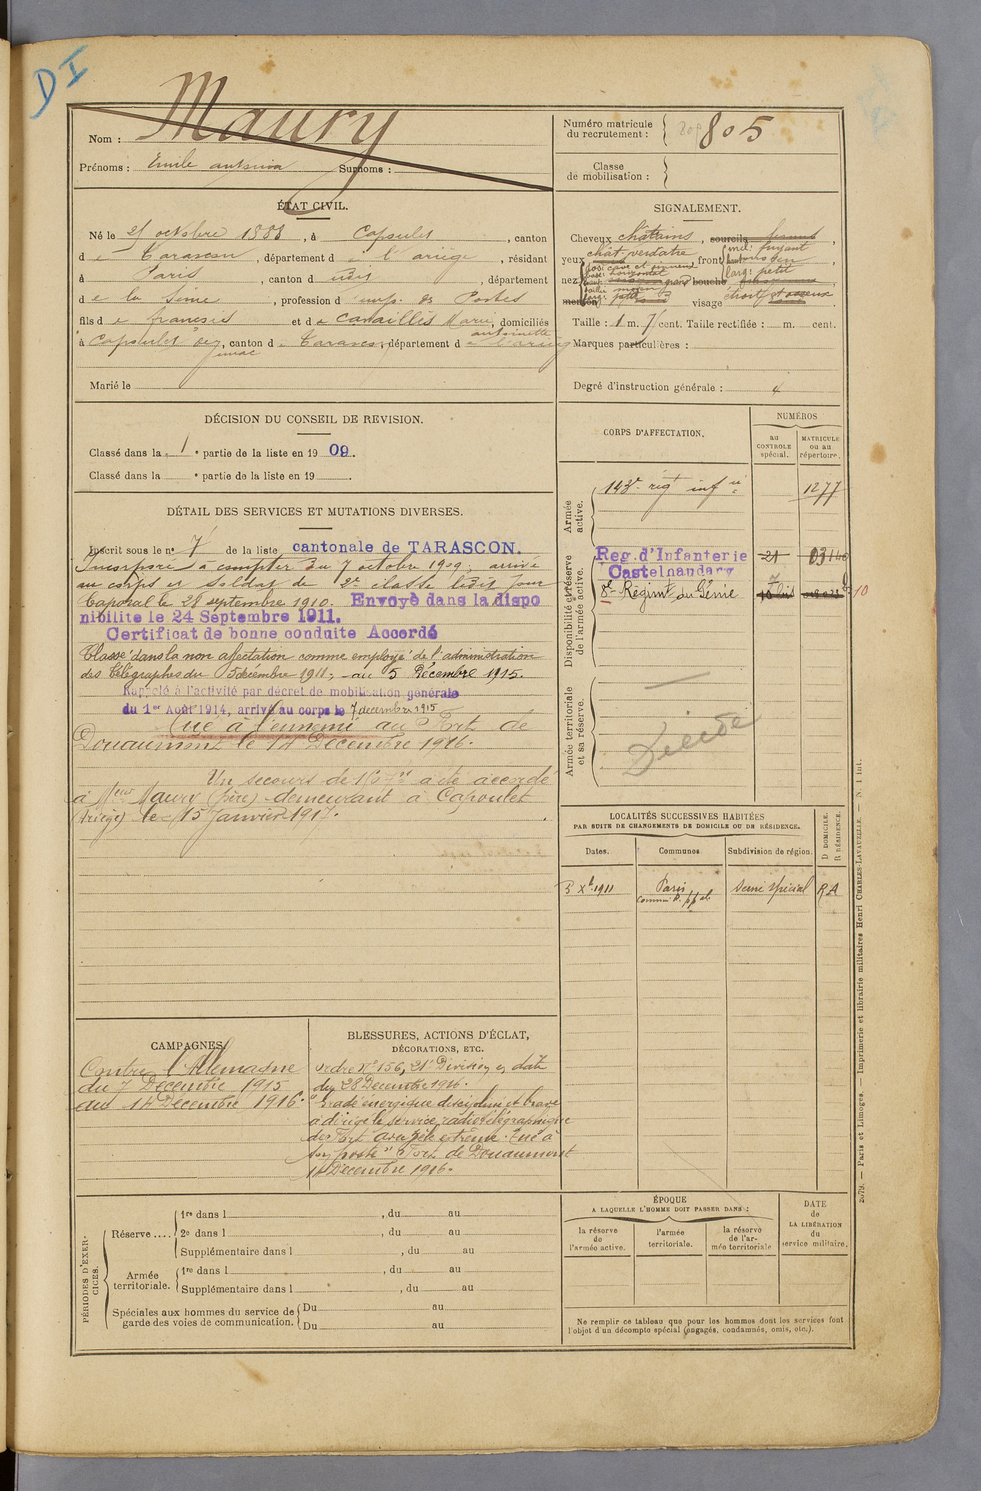 DI
Nom : Maury
Prénoms : Emile antonin Surnoms :
Numéro matricule du recrutement : 805
Classe de mobilisation :
ÉTAT CIVIL.
Né le 21 octobre 1888, à Capoulet, canton
d e Tarascon, département d e l'ariège, résidant
à Paris, canton d udit, département
d e la Seine, profession d' emp. des Postes
fils d e françois et d e Cavaillès Marie antoinette, domiciliés
à Capoulet et Junac, canton d e Tarascon, département d e l'ariège
Marié le
SIGNALEMENT.
Cheveux châtains, sourcils
yeux chât-verdâtre front incl: fuyant
nez bouche larg: petit
menton visage étroit et osseux
Taille : 1 m. cent. Taille rectifiée : m. cent.
Marques particulières :
Degré d'instruction générale : 4
DÉCISION DU CONSEIL DE REVISION.
Classé dans la 1 e partie de la liste en 1909.
Classé dans la e partie de la liste en 19
DÉTAIL DES SERVICES ET MUTATIONS DIVERSES.
Inscrit sous le n° 7 de la liste cantonale de TARASCON.
Incorporé à compter du 7 octobre 1909; arrivé
au corps et soldat de 2e classe ledit jour
Caporal le 28 septembre 1910. Envoyé dans la dispo
nibilité le 24 Septembre 1911.
Certificat de bonne conduite Accordé
Classé dans la non affectation comme employé de l'administration
des Télégraphes du 5 décembre 1911, au 5 Décembre 1915.
Rappelé à l'activité par décret de mobilisation générale
du 1er Août 1914, arrivé au corps le 7 décembre 1915
Tué à l'ennemi au Fort de
Douaumont le 14 Décembre 1916.
Un secours de 150 frs a été accordé
à Mr Maury (père) demeurant à Capoulet
(Ariège) le 15 Janvier 1917.
CORPS D'AFFECTATION.
NUMÉROS
au CONTROLE spécial.
MATRICULE ou au répertoire.
Armée active.
143e rég inf ie 1277
Disponibilité et réserve de l'armée active.
Reg. d'Infanterie 21 03140
Castelnaudary
8e Régiment du Génie
Armée territoriale et sa réserve.
Décédé
LOCALITÉS SUCCESSIVES HABITÉES
PAR SUITE DE CHANGEMENTS DE DOMICILE OU DE RÉSIDENCE.
Dates. Communes. Subdivision de région. D DOMICILE. R RÉSIDENCE.
5 Xbre 1911 Paris Seine spécial RA
CAMPAGNES
Contre l'Allemagne
du 7 Décembre 1915
au 14 Décembre 1916.
BLESSURES, ACTIONS D'ÉCLAT,
DÉCORATIONS, ETC.
Ordre N° 156, 21e Division en date
du 28 Décembre 1916.
"Gradé énergique discipliné et brave
a dirigé le service radiotélégraphique
des Fort avec zèle extrême. Tué à
son poste" Fort de Douaumont
14 Décembre 1916.
PÉRIODES D'EXERCICES.
Réserve .... 1re dans l , du au
2e dans l , du au
Supplémentaire dans l , du au
Armée territoriale. 1re dans l , du au
Supplémentaire dans l , du au
Spéciales aux hommes du service de garde des voies de communication. Du au
Du au
ÉPOQUE
A LAQUELLE L'HOMME DOIT PASSER DANS :
la réserve de l'armée active.
l'armée territoriale.
la réserve de l'armée territoriale
DATE de LA LIBÉRATION du service militaire.
Ne remplir ce tableau que pour les hommes dont les services font
l'objet d'un décompte spécial (engagés, condamnés, omis, etc.).
2079. — Paris et Limoges. — Imprimerie et librairie militaires Henri CHARLES-LAVAUZELLE. — N. 1 Int.